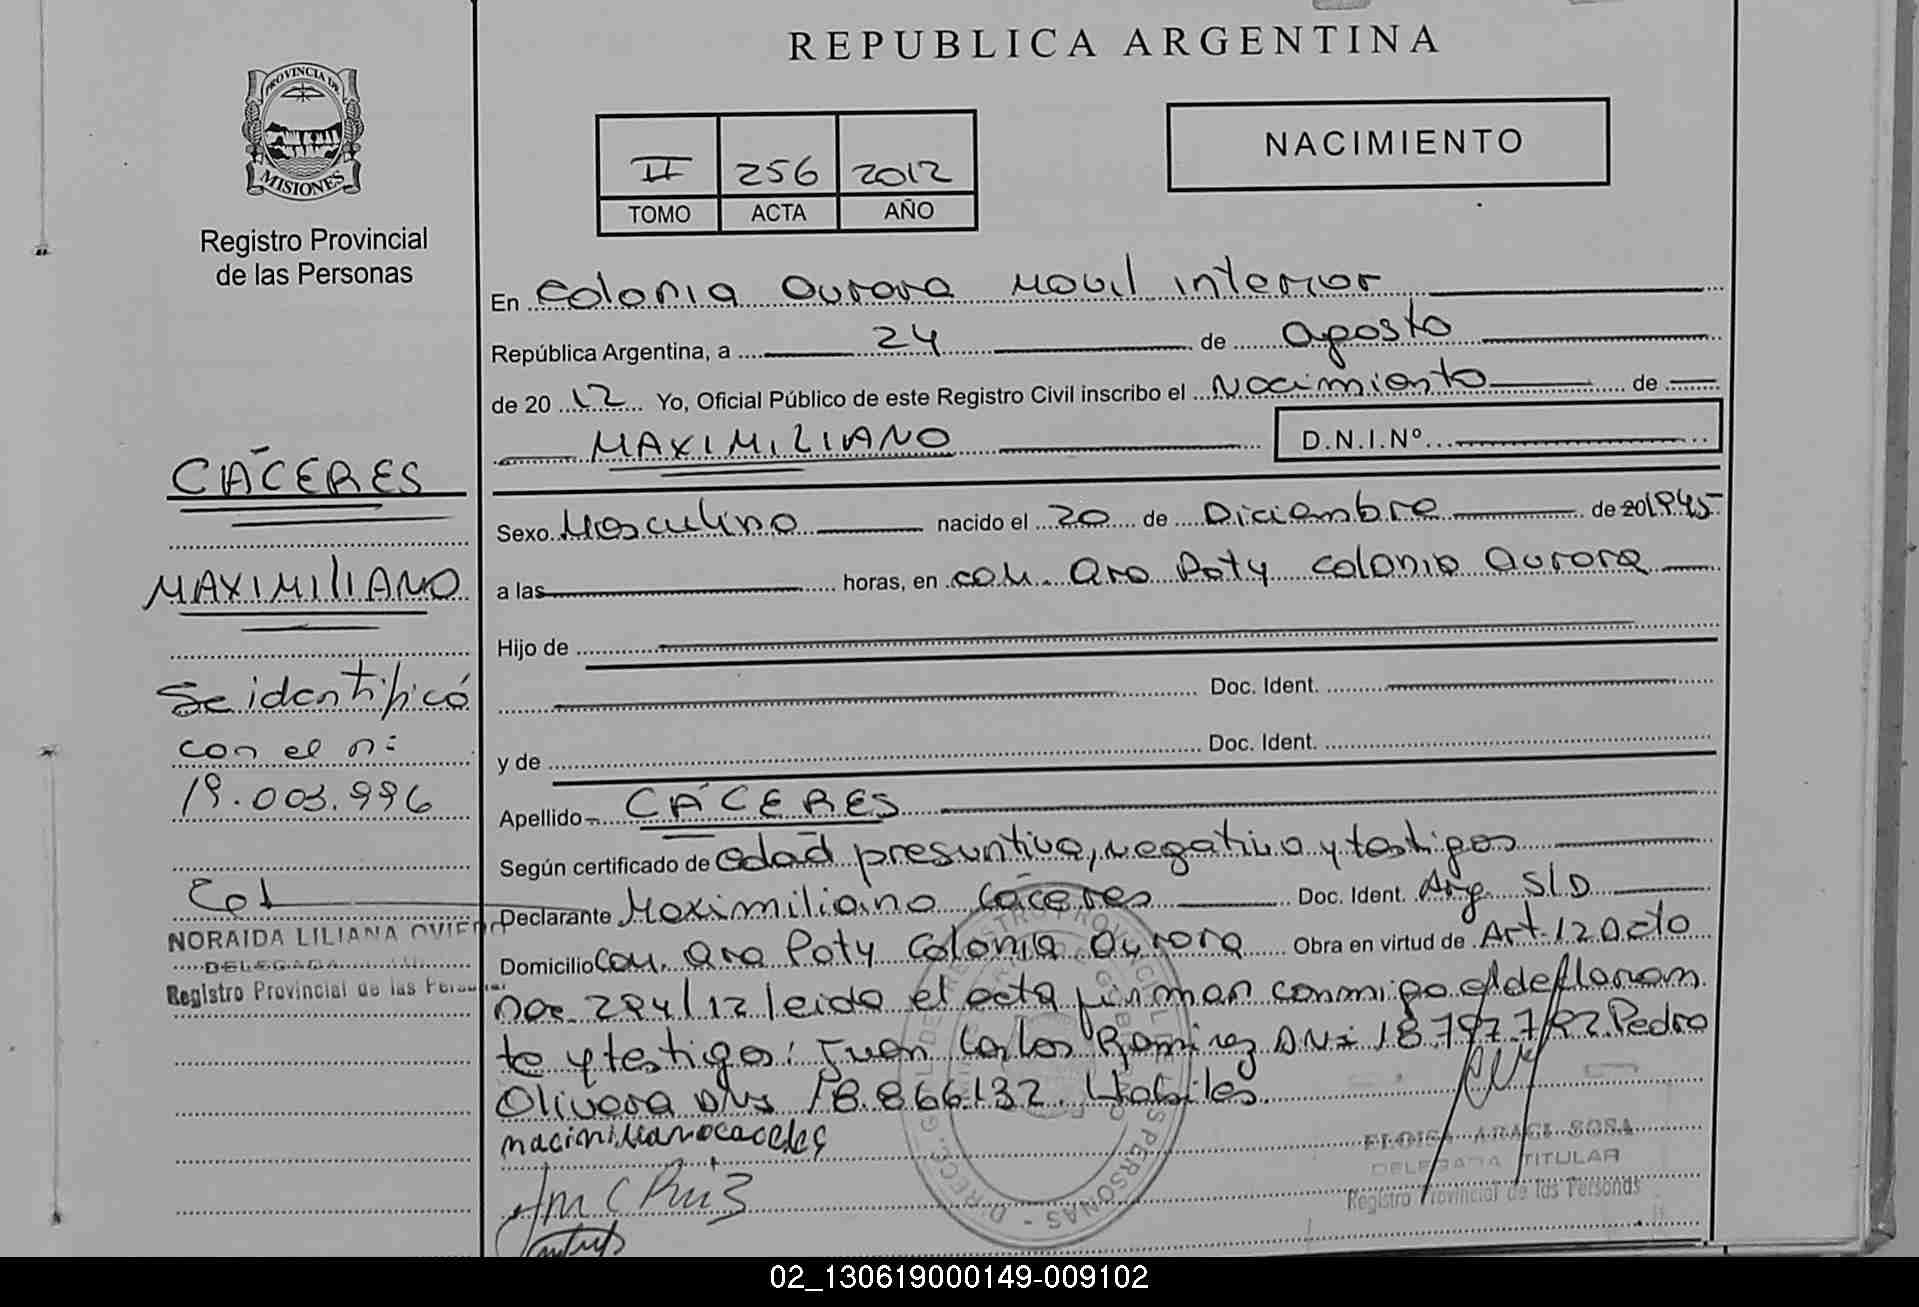 REPUBLICA ARGENTINA
PROVINCIA DE
MISIONES
Registro Provincial
de las Personas
II 256 2012
TOMO ACTA AÑO
NACIMIENTO
En Colonia Aurora Movil interior
República Argentina, a 24 de agosto
de 20 12 Yo, Oficial Público de este Registro Civil inscribo el Nacimiento de
MAXIMILIANO D.N.I.Nº
Sexo Masculino nacido el 20 de Diciembre de 201945
a las horas, en Col. Ara Poty Colonia Aurora
Hijo de
Doc. Ident.
y de Doc. Ident.
Apellido CÁCERES
Según certificado de edad presuntiva, negativa y testigos
Declarante Maximiliano Cáceres Doc. Ident. Arg. S/D
Domicilio Col. Ara Poty Colonia Aurora Obra en virtud de Art. 12 Dcto
294/12 leida el acta firman conmigo el declaran
te y testigos: Juan Carlos Ramirez DNI 18.797.782 Pedro
Olivera DNI 18.866.132. Habiles.
CÁCERES
MAXIMILIANO
Se identificó
con el n:
19.003.996
NORAIDA LILIANA OVIEDO
DELEGADA
Registro Provincial de las Personas
ELOISA ARACI SOSA
DELEGADA TITULAR
Registro Provincial de las Personas
02_130619000149-009102